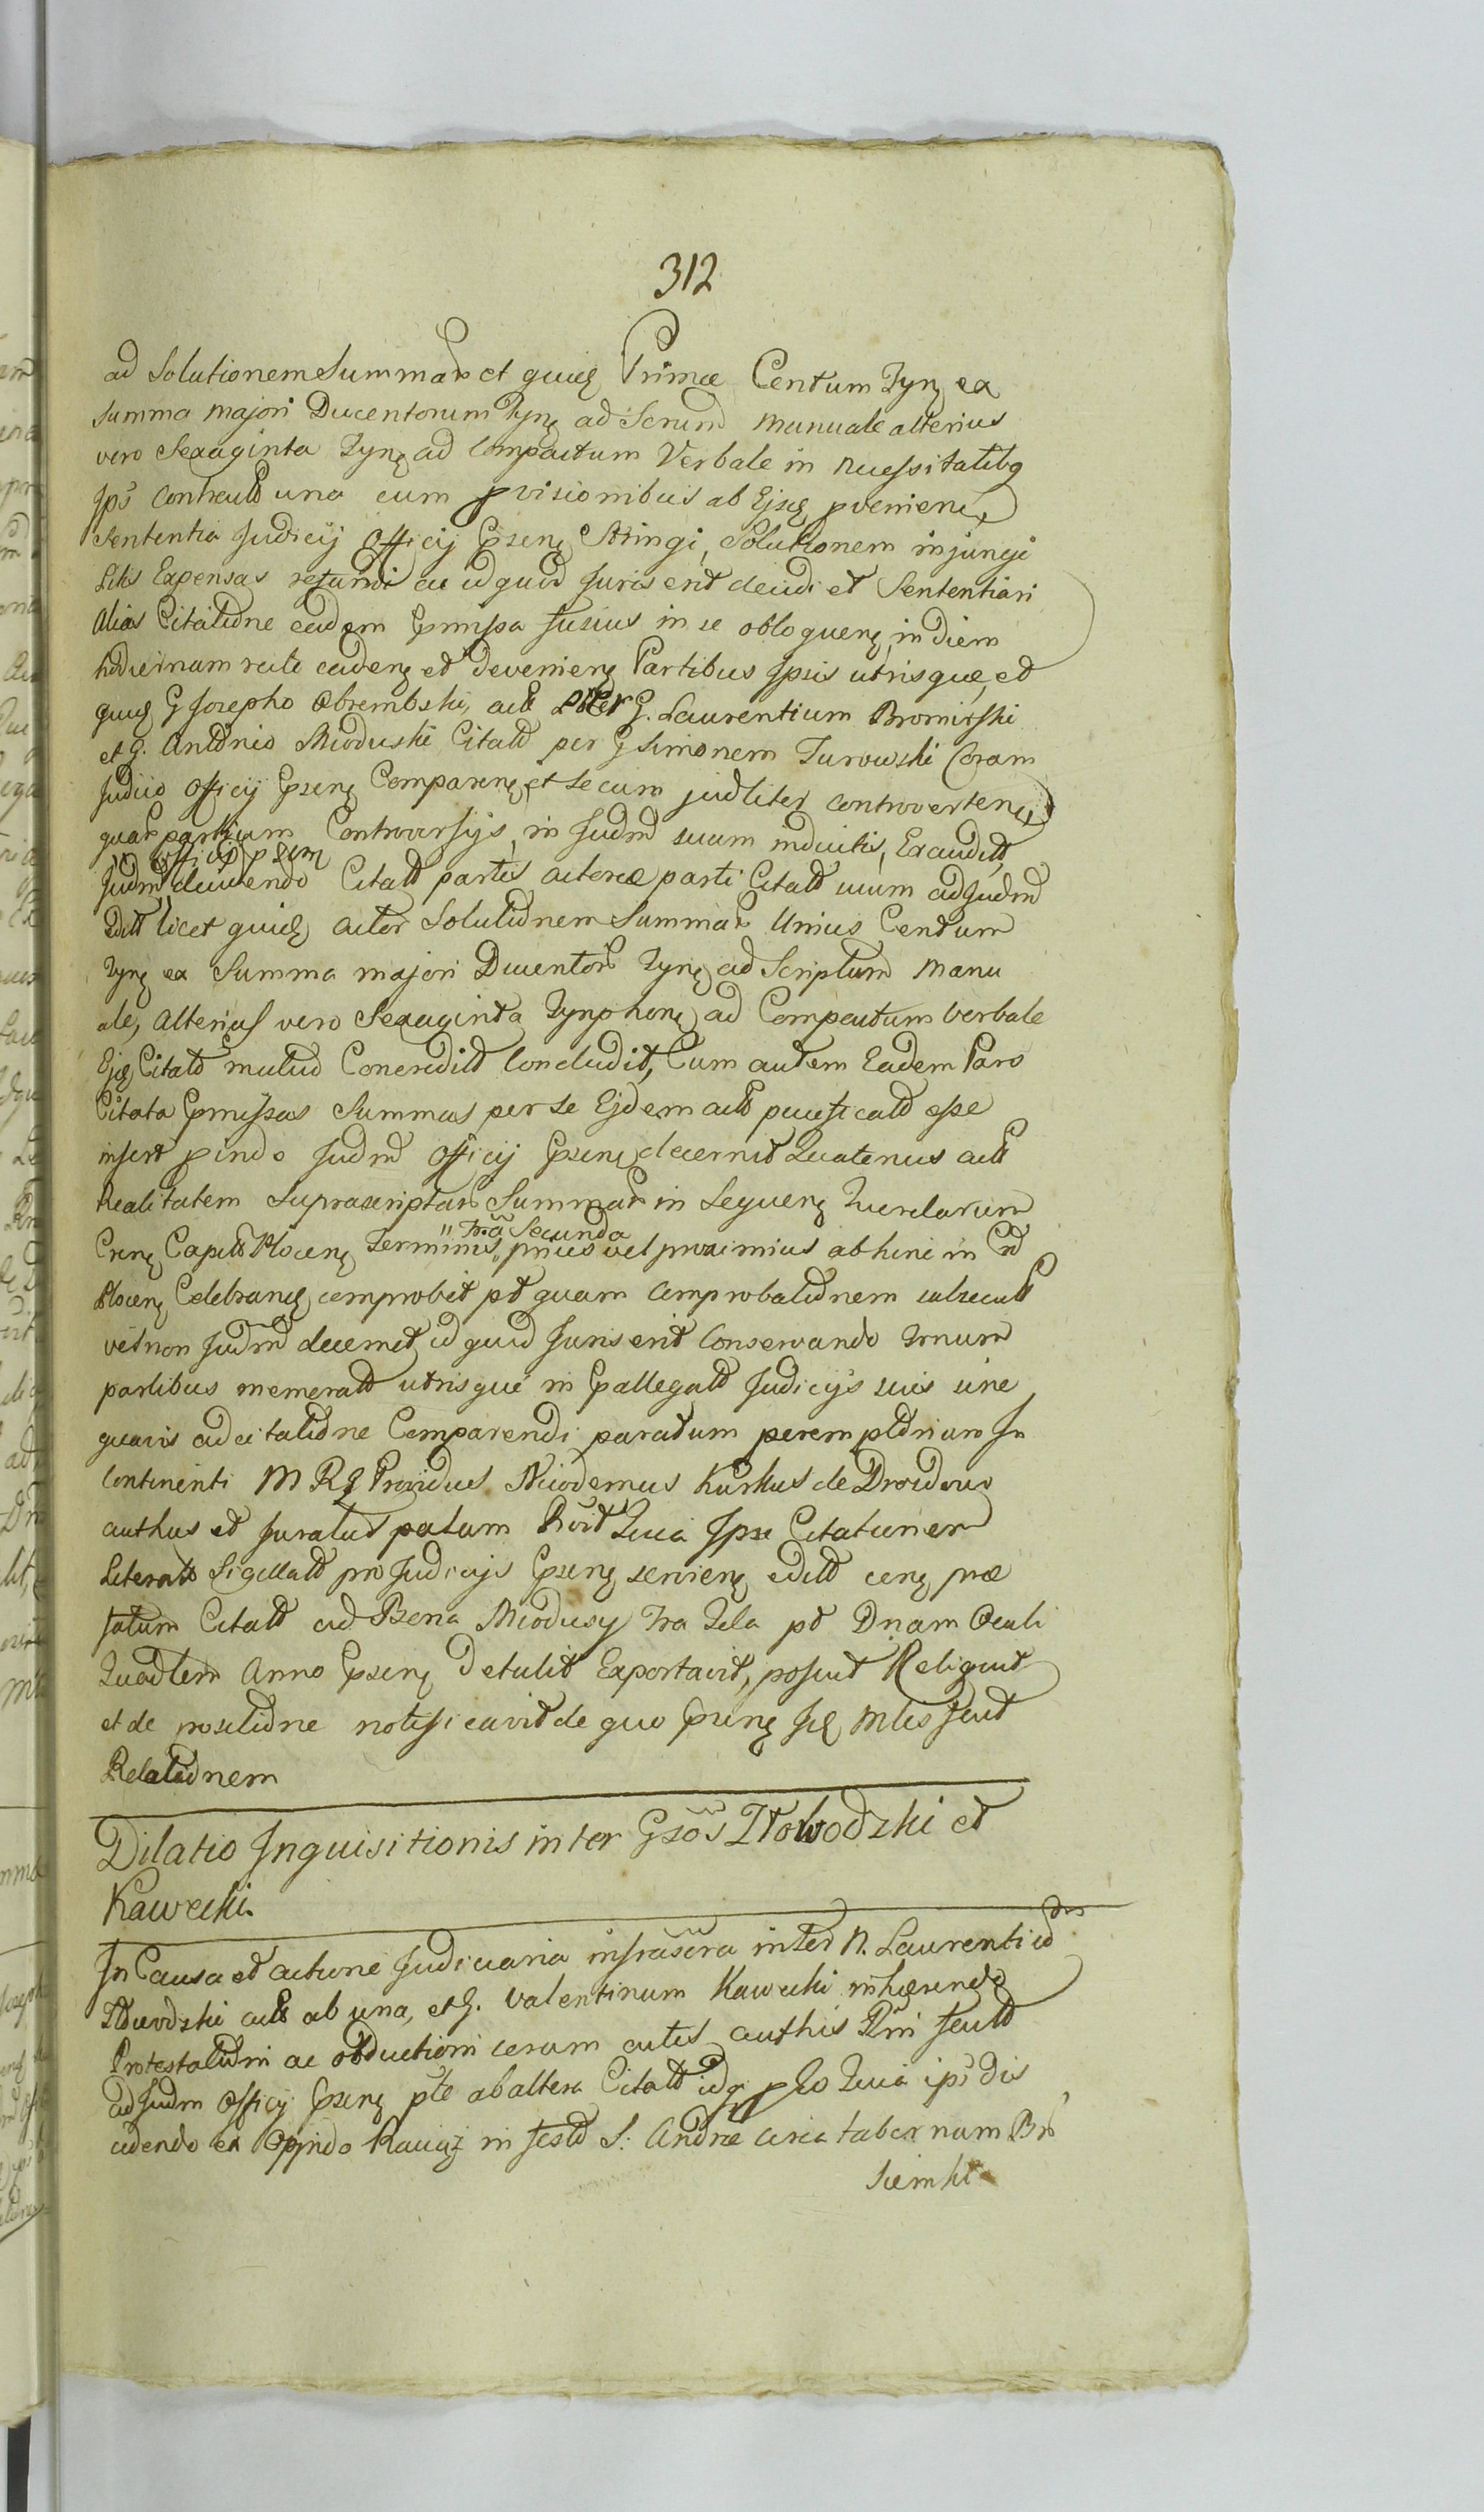 312
ad Solutionem Summar et quidẽ Primæ Centum Tynẽ ex
summa majori Ducentorum Tynẽ ad Scrumd manuale alterius
vero Sexaginta Tynẽ ad Compactum Verbale in necessitatibq
Ips contractt una cum pvisionibus ab Ejsdẽ provenienẽ
Sententia Judicij Officij Psenẽ Stringi, Solutionem injungi
Litis Expensas refundi ac id quod Juris erit decidi et Sententiari
alias Citatione eadem Pmissa fusius in se obloquenẽ, in diem
hodiernam recte cadenẽ et devenienẽ Partibus Ipsis utrisque, et
quidẽ G Josepho Obrembski, actt per G. Laurentium Bromirski
et G. Antonio Mioduski Citatt per G Simonem Turowski Coram
Judicio Officij Psenẽ Comparenẽ, et secum judliter controvertenẽ,
quar partium Controversijs, in Judm suum inductis, Exauditt,
officij psem
Judm ducendo Citatt partis actoreæ parti Citatt suum ad Judm
Editt licet quidẽ actor Solutionem Summar Unius Centum
Tynẽ ex Summa majori Ducentor Tynẽ ad Scriptum manu
ale, alterius vero Sexaginta Tynphonẽ ad Compactum verbale
Ejdẽ Citatt mutuo Concreditt Concludit, Cum autem Eadem Pars
Citata Pmissas Summas per se Ejdem actt pacificatt esse
infert pindo Judm Officij Psenẽ decernit Quatenus actt
Realitatem Suprascriptar Summar in Sequenẽ Querelarum
"tra Secunda
Crenẽ Capitt Plocenẽ Terminis, prius vel proximius abhinc in Crd
Plocenẽ Celebrandẽ comprobet pt quam comprobationem subsecutt
vel non Judm decernet id quid Juris erit Conservando Trnum
partibus memoratt utrisque in Pallegatt Judicijs suis sine
quavis adcitatione Comparendi paratum peremptorium In
Continenti M R G Providus Nicodemus Kurkus de Drozdowo
authus et Juratus palam Rvit Quia Ipse Citationem
Literatt Sigillatt pro Judicijs Psenẽ servienẽ editt cenẽ præ
fatum Citatt ad Bona Miodusy Fra 2da pt Dnam Oculi
Quadlem Anno Psenẽ Detulit Exportavit, posuit Reliquit
et de positione notificavit de quo Psenẽ Jdẽ Mlis fecit
Relationem
Dilatio Inquisitionis inter Gsos Włowodzki et
Kawecki.
In Causa et actione Judiciaria infrascra inter N. Laurentiu
actt ab una, et G. Valentinum Kawecki inhærendo
Protestationi ac obductioni coram actis authis Rmi fcatt
ad Judm Officij Psenẽ pte ab altera Citatt idq pEo Quia ipsi dis
cedendo ex Oppido Raciąż in festo S: Andræ circa tabernam Bro
siemki